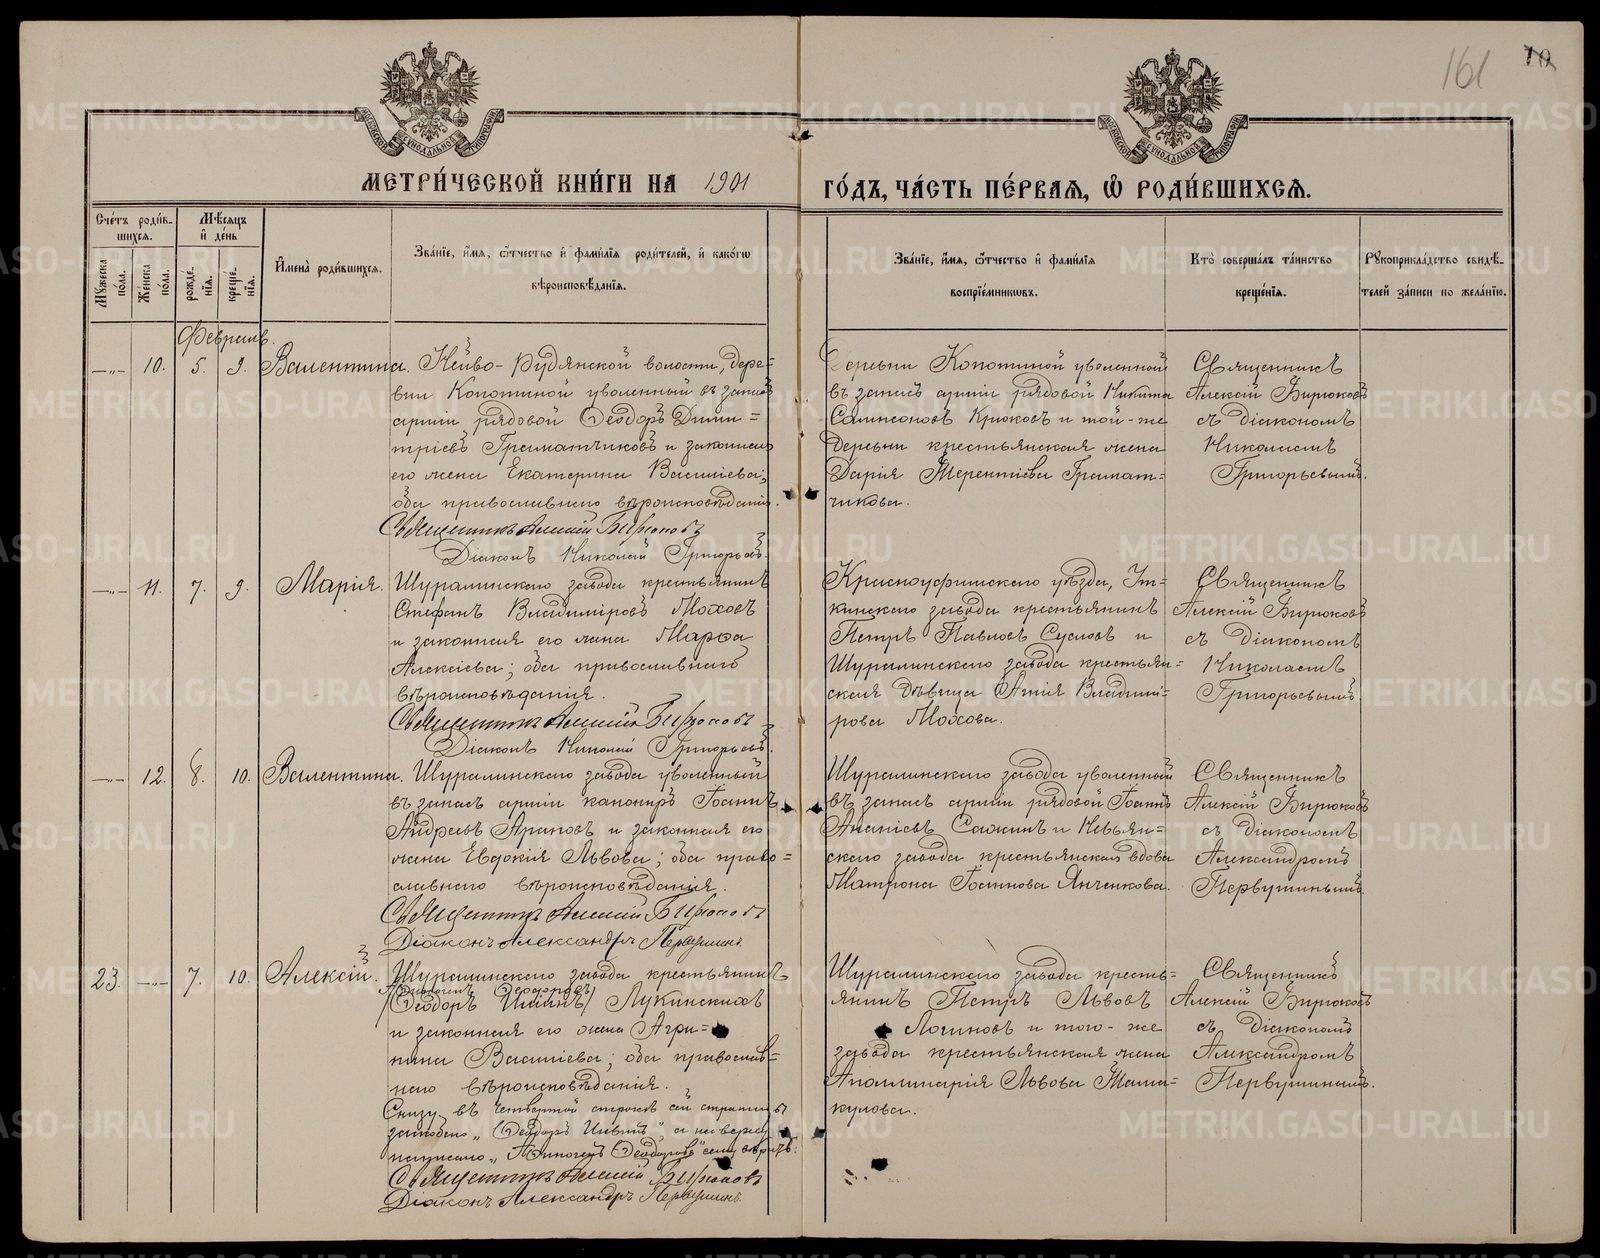 161 10
МЕТРИ́ЧЕСКОЙ КНИ́ГИ НА 1901 ГО́ДЪ, ЧА́СТЬ ПЕ́РВАѦ, Ѡ РОДИ́ВШИХСѦ.
Сче́тъ роди́вшихсѧ.
Мꙋ́жеска по́ла.
Же́нска по́ла.
Мѣ́сѧцъ и де́нь
рожде́нїѧ.
креще́нїѧ.
И҆мена̀ роди́вшихсѧ.
Зва́нїе, и҆́мѧ, ѻ҆́тчество и҆ фами́лїѧ роди́телей, и҆ како́гѡ
вѣроисповѣ́данїѧ.
Зва́нїе, и҆́мѧ, ѻ҆́тчество и҆ фами́лїѧ
воспрїе́мникѡвъ.
Кто̀ соверша́лъ та́инство
креще́нїѧ.
Рꙋкоприкла́дство свидѣ́-
телей за́писи по жела́нїю.
Февраль.
—„— 10. 5. 9. Валентина.
Нейво-Рудянской волости, дере-
вни Копотиной уволенный въ запасъ
арміи рядовой Ѳеодоръ Дими-
тріевъ Граматчиковъ и законная
его жена Екатерина Васильева;
оба православнаго вѣроисповѣданія.
Священникъ Алексій Бирюковъ
Діаконъ Николай Григорьевъ.
Деревни Копотиной уволенный
въ запасъ арміи рядовой Никита
Самсоновъ Крюковъ и той-же
деревни крестьянская жена
Дарія Терентіева Грамат-
чикова.
Священникъ
Алексій Бирюковъ
съ діакономъ
Николаемъ
Григорьевымъ.
—„— 11. 7. 9. Марія.
Шуралинскаго завода крестьянинъ
Стефанъ Владиміровъ Моховъ
и законная его жена Марѳа
Алексіева; оба православнаго
вѣроисповѣданія.
Священникъ Алексій Бирюковъ
Діаконъ Николай Григорьевъ.
Красноуфимскаго уѣзда, Ут-
кинскаго завода крестьянинъ
Петръ Павловъ Сусловъ и
Шуралинскаго завода крестьян-
ская дѣвица Агнія Владимі-
рова Мохова.
Священникъ
Алексій Бирюковъ
съ діакономъ
Николаемъ
Григорьевымъ.
—„— 12. 8. 10. Валентина.
Шуралинскаго завода уволенный
въ запасъ арміи канониръ Іоаннъ
Андреевъ Араповъ и законная его
жена Евдокія Львова; оба право-
славнаго вѣроисповѣданія.
Священникъ Алексій Бирюковъ
Діаконъ Александръ Первушинъ.
Шуралинскаго завода уволенный
въ запасъ арміи рядовой Іоаннъ
Ананіевъ Сажинъ и Невьян-
скаго завода крестьянская вдова
Матрона Іоаннова Янченкова.
Священникъ
Алексій Бирюковъ
съ діакономъ
Александромъ
Первушинымъ.
23. —„— 7. 10. Алексій.
Шуралинскаго завода крестьянинъ
Ѳеодоровъ
(Ѳеодоръ Ильинъ) Лукинскихъ
и законная его жена Агри-
пина Васильева; оба православ-
наго вѣроисповѣданія.
Снизу въ четвертой строкѣ сей страницы
заскоблено „Ѳеодоръ Ильинъ", а на верху
написано
Священникъ Алексій Бирюковъ
Діаконъ Александръ Первушинъ.
Шуралинскаго завода кресть-
янинъ Петръ Львовъ
Логиновъ и того-же
завода крестьянская жена
Аполлинарія Львова Тама-
кулова.
Священникъ
Алексій Бирюковъ
съ діакономъ
Александромъ
Первушинымъ.
METRIKI.GASO-URAL.RU